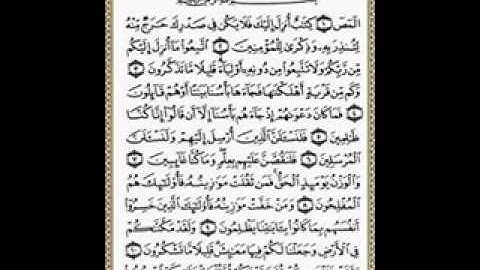 الٓمٓصٓ ١ كِتَٰبٌ أُنزِلَ إِلَيْكَ فَلَا يَكُن فِى صَدْرِكَ حَرَجٌ مِّنْهُ
لِتُنذِرَ بِهِۦ وَذِكْرَىٰ لِلْمُؤْمِنِينَ ٢ ٱتَّبِعُوا۟ مَآ أُنزِلَ إِلَيْكُم
مِّن رَّبِّكُمْ وَلَا تَتَّبِعُوا۟ مِن دُونِهِۦٓ أَوْلِيَآءَ قَلِيلًا مَّا تَذَكَّرُونَ ٣
وَكَم مِّن قَرْيَةٍ أَهْلَكْنَٰهَا فَجَآءَهَا بَأْسُنَا بَيَٰتًا أَوْ هُمْ قَآئِلُونَ
٤ فَمَا كَانَ دَعْوَىٰهُمْ إِذْ جَآءَهُم بَأْسُنَآ إِلَّآ أَن قَالُوٓا۟ إِنَّا كُنَّا
ظَٰلِمِينَ ٥ فَلَنَسْـَٔلَنَّ ٱلَّذِينَ أُرْسِلَ إِلَيْهِمْ وَلَنَسْـَٔلَنَّ
ٱلْمُرْسَلِينَ ٦ فَلَنَقُصَّنَّ عَلَيْهِم بِعِلْمٍ وَمَا كُنَّا غَآئِبِينَ
٧ وَٱلْوَزْنُ يَوْمَئِذٍ ٱلْحَقُّ فَمَن ثَقُلَتْ مَوَٰزِينُهُۥ فَأُو۟لَٰٓئِكَ هُمُ
ٱلْمُفْلِحُونَ ٨ وَمَنْ خَفَّتْ مَوَٰزِينُهُۥ فَأُو۟لَٰٓئِكَ ٱلَّذِينَ خَسِرُوٓا۟
أَنفُسَهُم بِمَا كَانُوا۟ بِـَٔايَٰتِنَا يَظْلِمُونَ ٩ وَلَقَدْ مَكَّنَّٰكُمْ
فِى ٱلْأَرْضِ وَجَعَلْنَا لَكُمْ فِيهَا مَعَٰيِشَ قَلِيلًا مَّا تَشْكُرُونَ ١٠